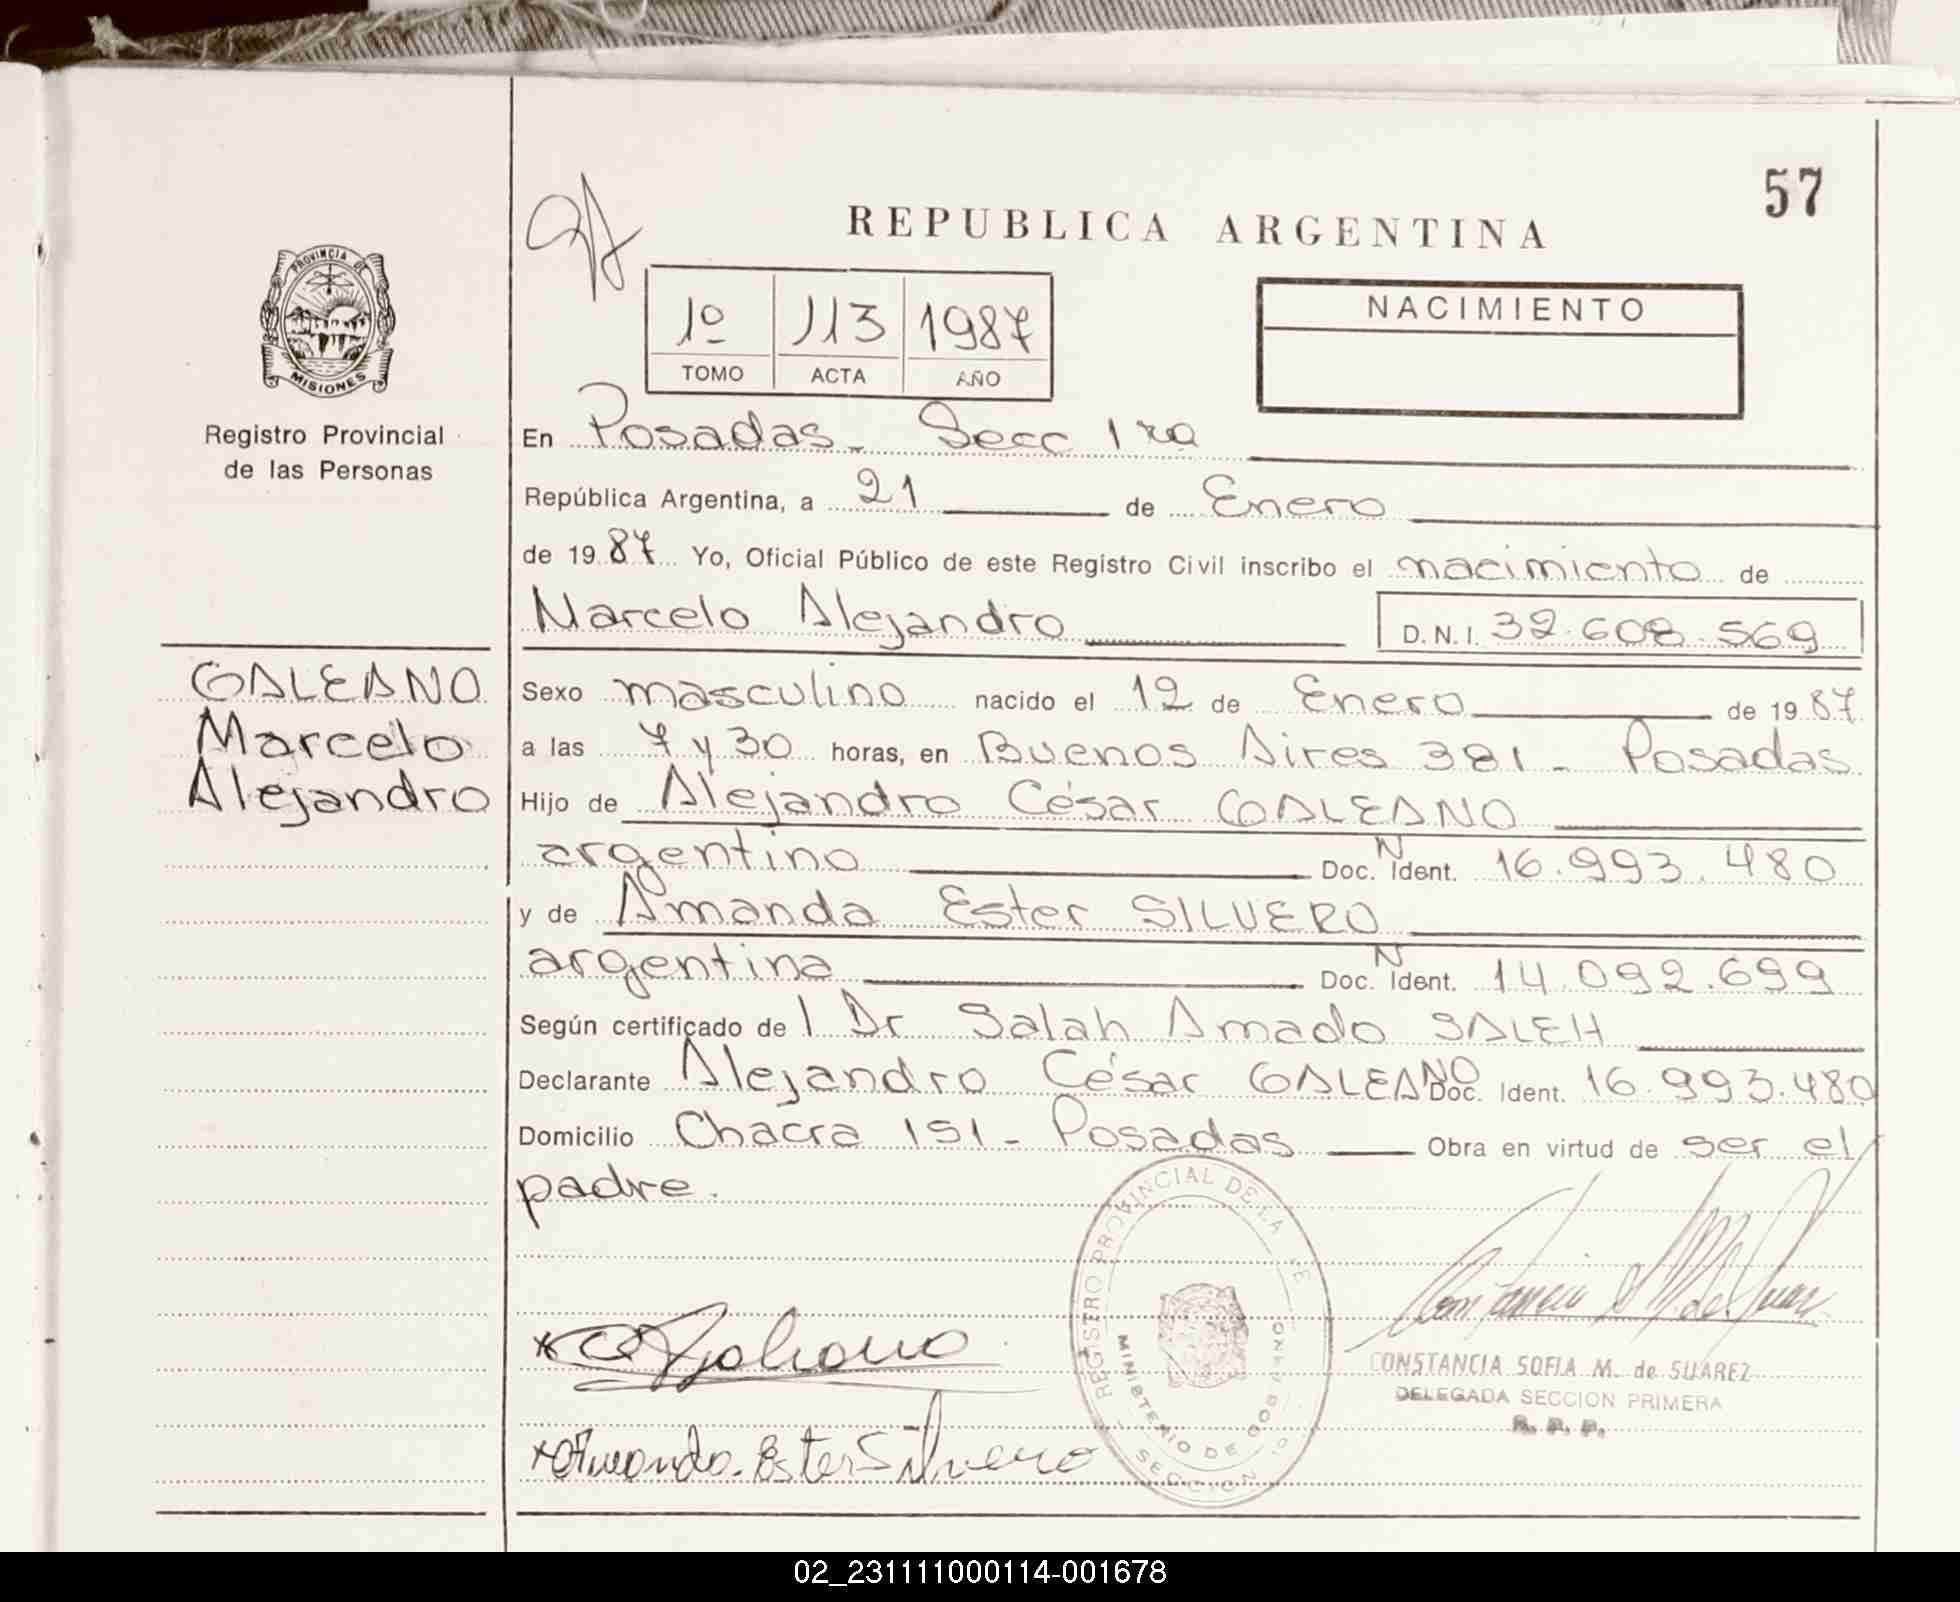 57
REPUBLICA ARGENTINA
PROVINCIA DE
MISIONES
Registro Provincial
de las Personas
1º 113 1987
TOMO ACTA AÑO
NACIMIENTO
En Posadas - Secc 1ra
República Argentina, a 21 de Enero
de 1987 Yo, Oficial Público de este Registro Civil inscribo el nacimiento de
Marcelo Alejandro D.N.I. 32.608.569
GALEANO
Marcelo
Alejandro
Sexo masculino nacido el 12 de Enero de 1987
a las 7 y 30 horas, en Buenos Aires 381 - Posadas
Hijo de Alejandro César GALEANO
argentino Doc. N Ident. 16.993.480
y de Amanda Ester SILVERO
argentina Doc. N Ident. 14.092.699
Según certificado de l Dr Salah Amado SALEH
Declarante Alejandro César GALEANO Doc. Ident. 16.993.480
Domicilio Chacra 151 - Posadas Obra en virtud de ser el
padre.
REGISTRO PROVINCIAL DE LA
MINISTERIO DE GOBIERNO
SECCION
Amanda Ester Silvero
CONSTANCIA SOFIA M. de SUAREZ
DELEGADA SECCION PRIMERA
R. P. P.
02_231111000114-001678